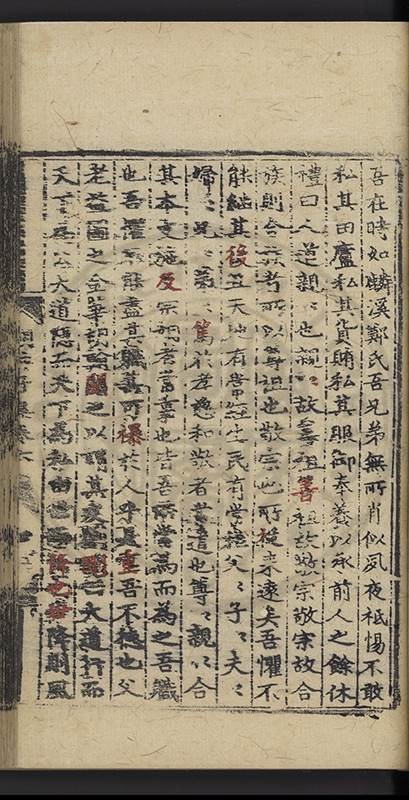 吾在時如麟溪鄭氏吾兄弟無所肖似夙夜祗惕不敢
私其田廬私其貨賄私其服御奉養以永前人之餘休
禮曰人道親〻也親〻故尊祖善祖故敬宗敬宗故合
族則合族者所以尊祖也敬宗也所從來遠矣吾懼不
能繼其後且天地有常經生民有常彝父〻子〻夫〻
婦〻兄〻弟〻篤於孝慈和敬者常道也尊〻親〻合
其本支施及宗祠者常事也皆吾所當為而為之吾職
也吾懼不能盡其職其可襮於人乎是重吾不德也父
老咨嗟之合辭頌之以謂其大道行而
天下為公大道隱而天下為私降則風